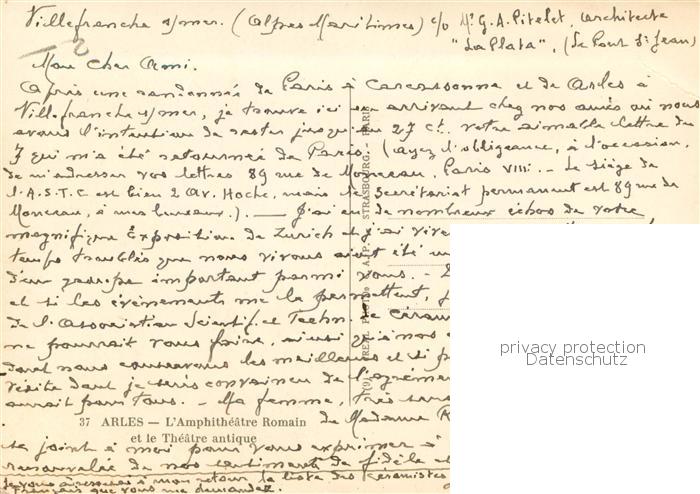 Villefranche s/mer. (Alpes Maritimes) c/o Mr G. A. Pitelet, architecte
"La Plata", (Le Pont St Jean)
Mon Cher Ami.
Après une randonnée de Paris à Carcassonne et de Arles à
Villefranche s/mer, je trouve ici en arrivant chez nos amis où nous
avons l'intention de rester jusqu'au 27 ct. votre aimable lettre du
7 qui m'a été retournée de Paris. (Ayez l'obligeance, à l'occasion,
de m'adresser vos lettres 89 rue de Monceau, Paris VIII. - Le siège de
l'A.S.T.C est bien 2 Av. Hoche, mais le Secrétariat permanent est 89 rue de
Monceau, à mes bureaux.). — J'ai eu de nombreux échos de votre
magnifique Exposition de Zurich et j'ai vive
temps troublés que nous vivons aient été un
d'un groupe important parmi vous. -
et si les évènements me le permettent, j
de l'Association Scientif. et Techn. de Céram
me pourrait vous faire, ainsi qu'à nos
dont nous conservons les meilleurs et si p
visite dont je serais convaincu de l'agrémen
aurait pour tous. - Ma femme, très sens
de Madame
37 ARLES — L'Amphithéâtre Romain
et le Théâtre antique
se joint à moi pour vous exprimer à
renouvelée de nos sentiments de fidèle et
Je vous adresserai à mon retour la liste des céramistes
français que vous me demandez.
CAP - STRASBOURG - PARIS
privacy protection
Datenschutz